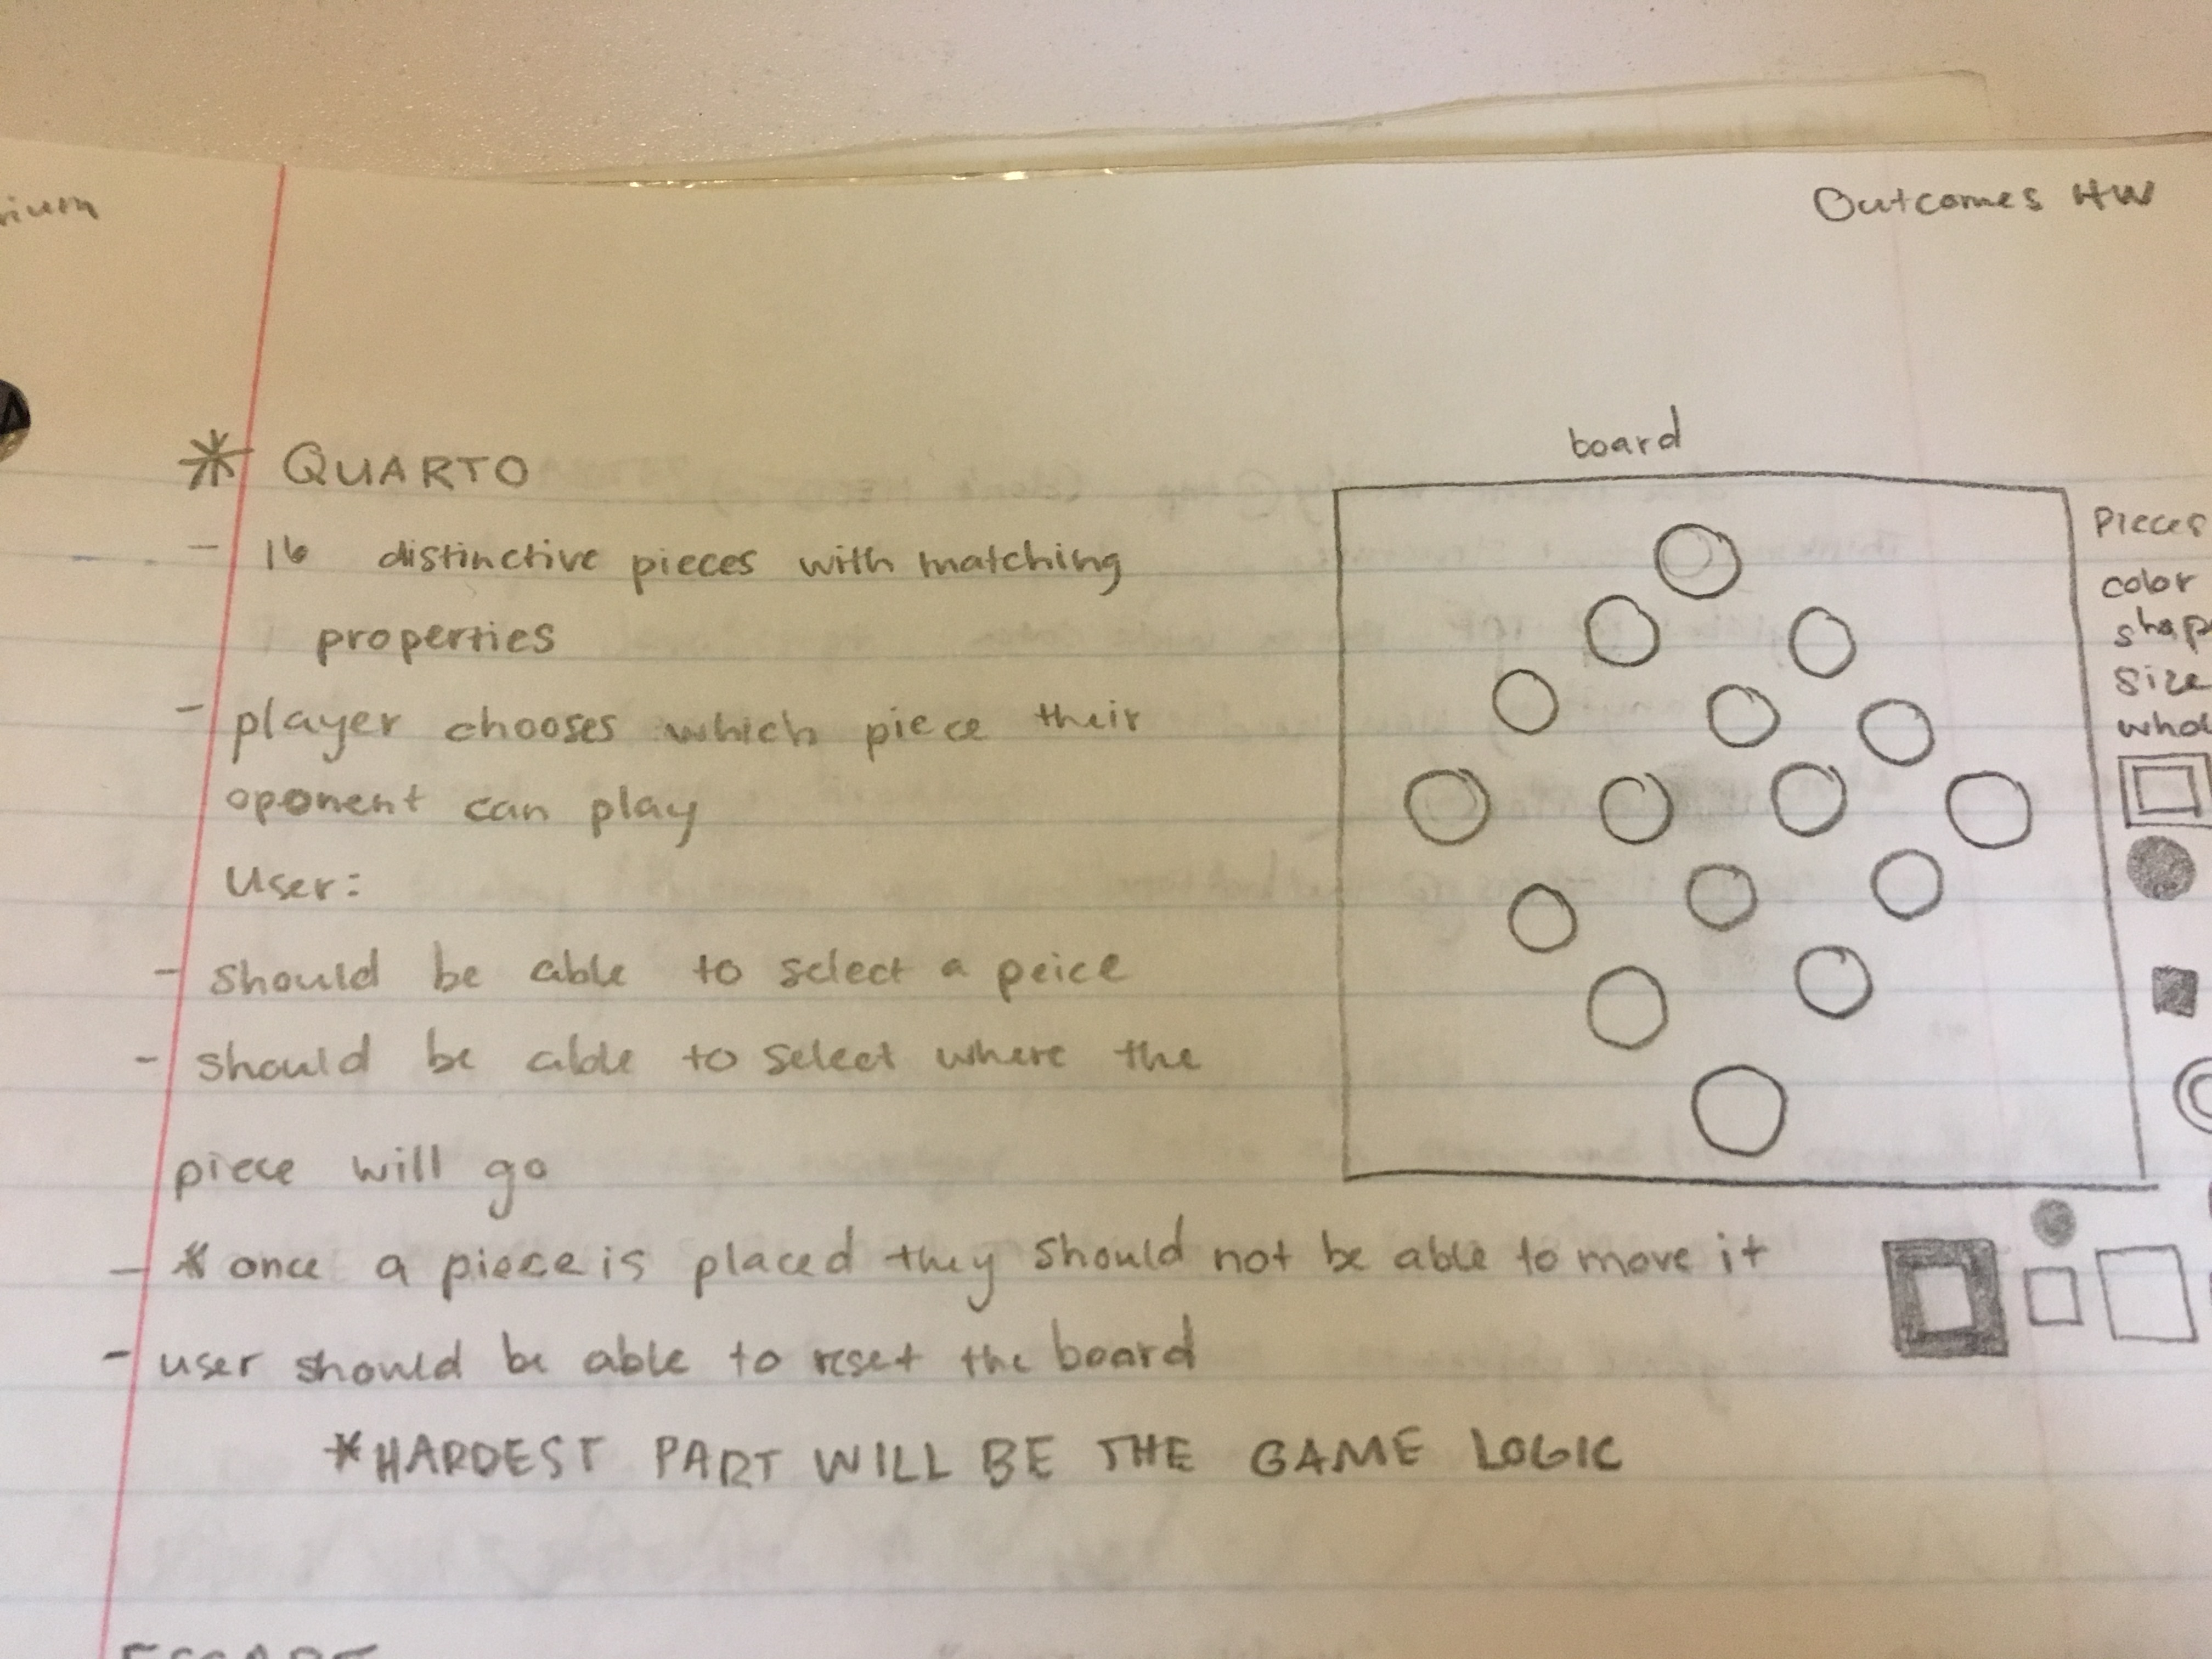 Outcomes HW
* QUARTO
- 16 distinctive pieces with matching
properties
- player chooses which piece their
oponent can play
User:
- should be able to select a peice
- should be able to select where the
piece will go
- * once a piece is placed they should not be able to move it
- user should be able to reset the board
*HARDEST PART WILL BE THE GAME LOGIC
board
Pieces
color
shap
size
who